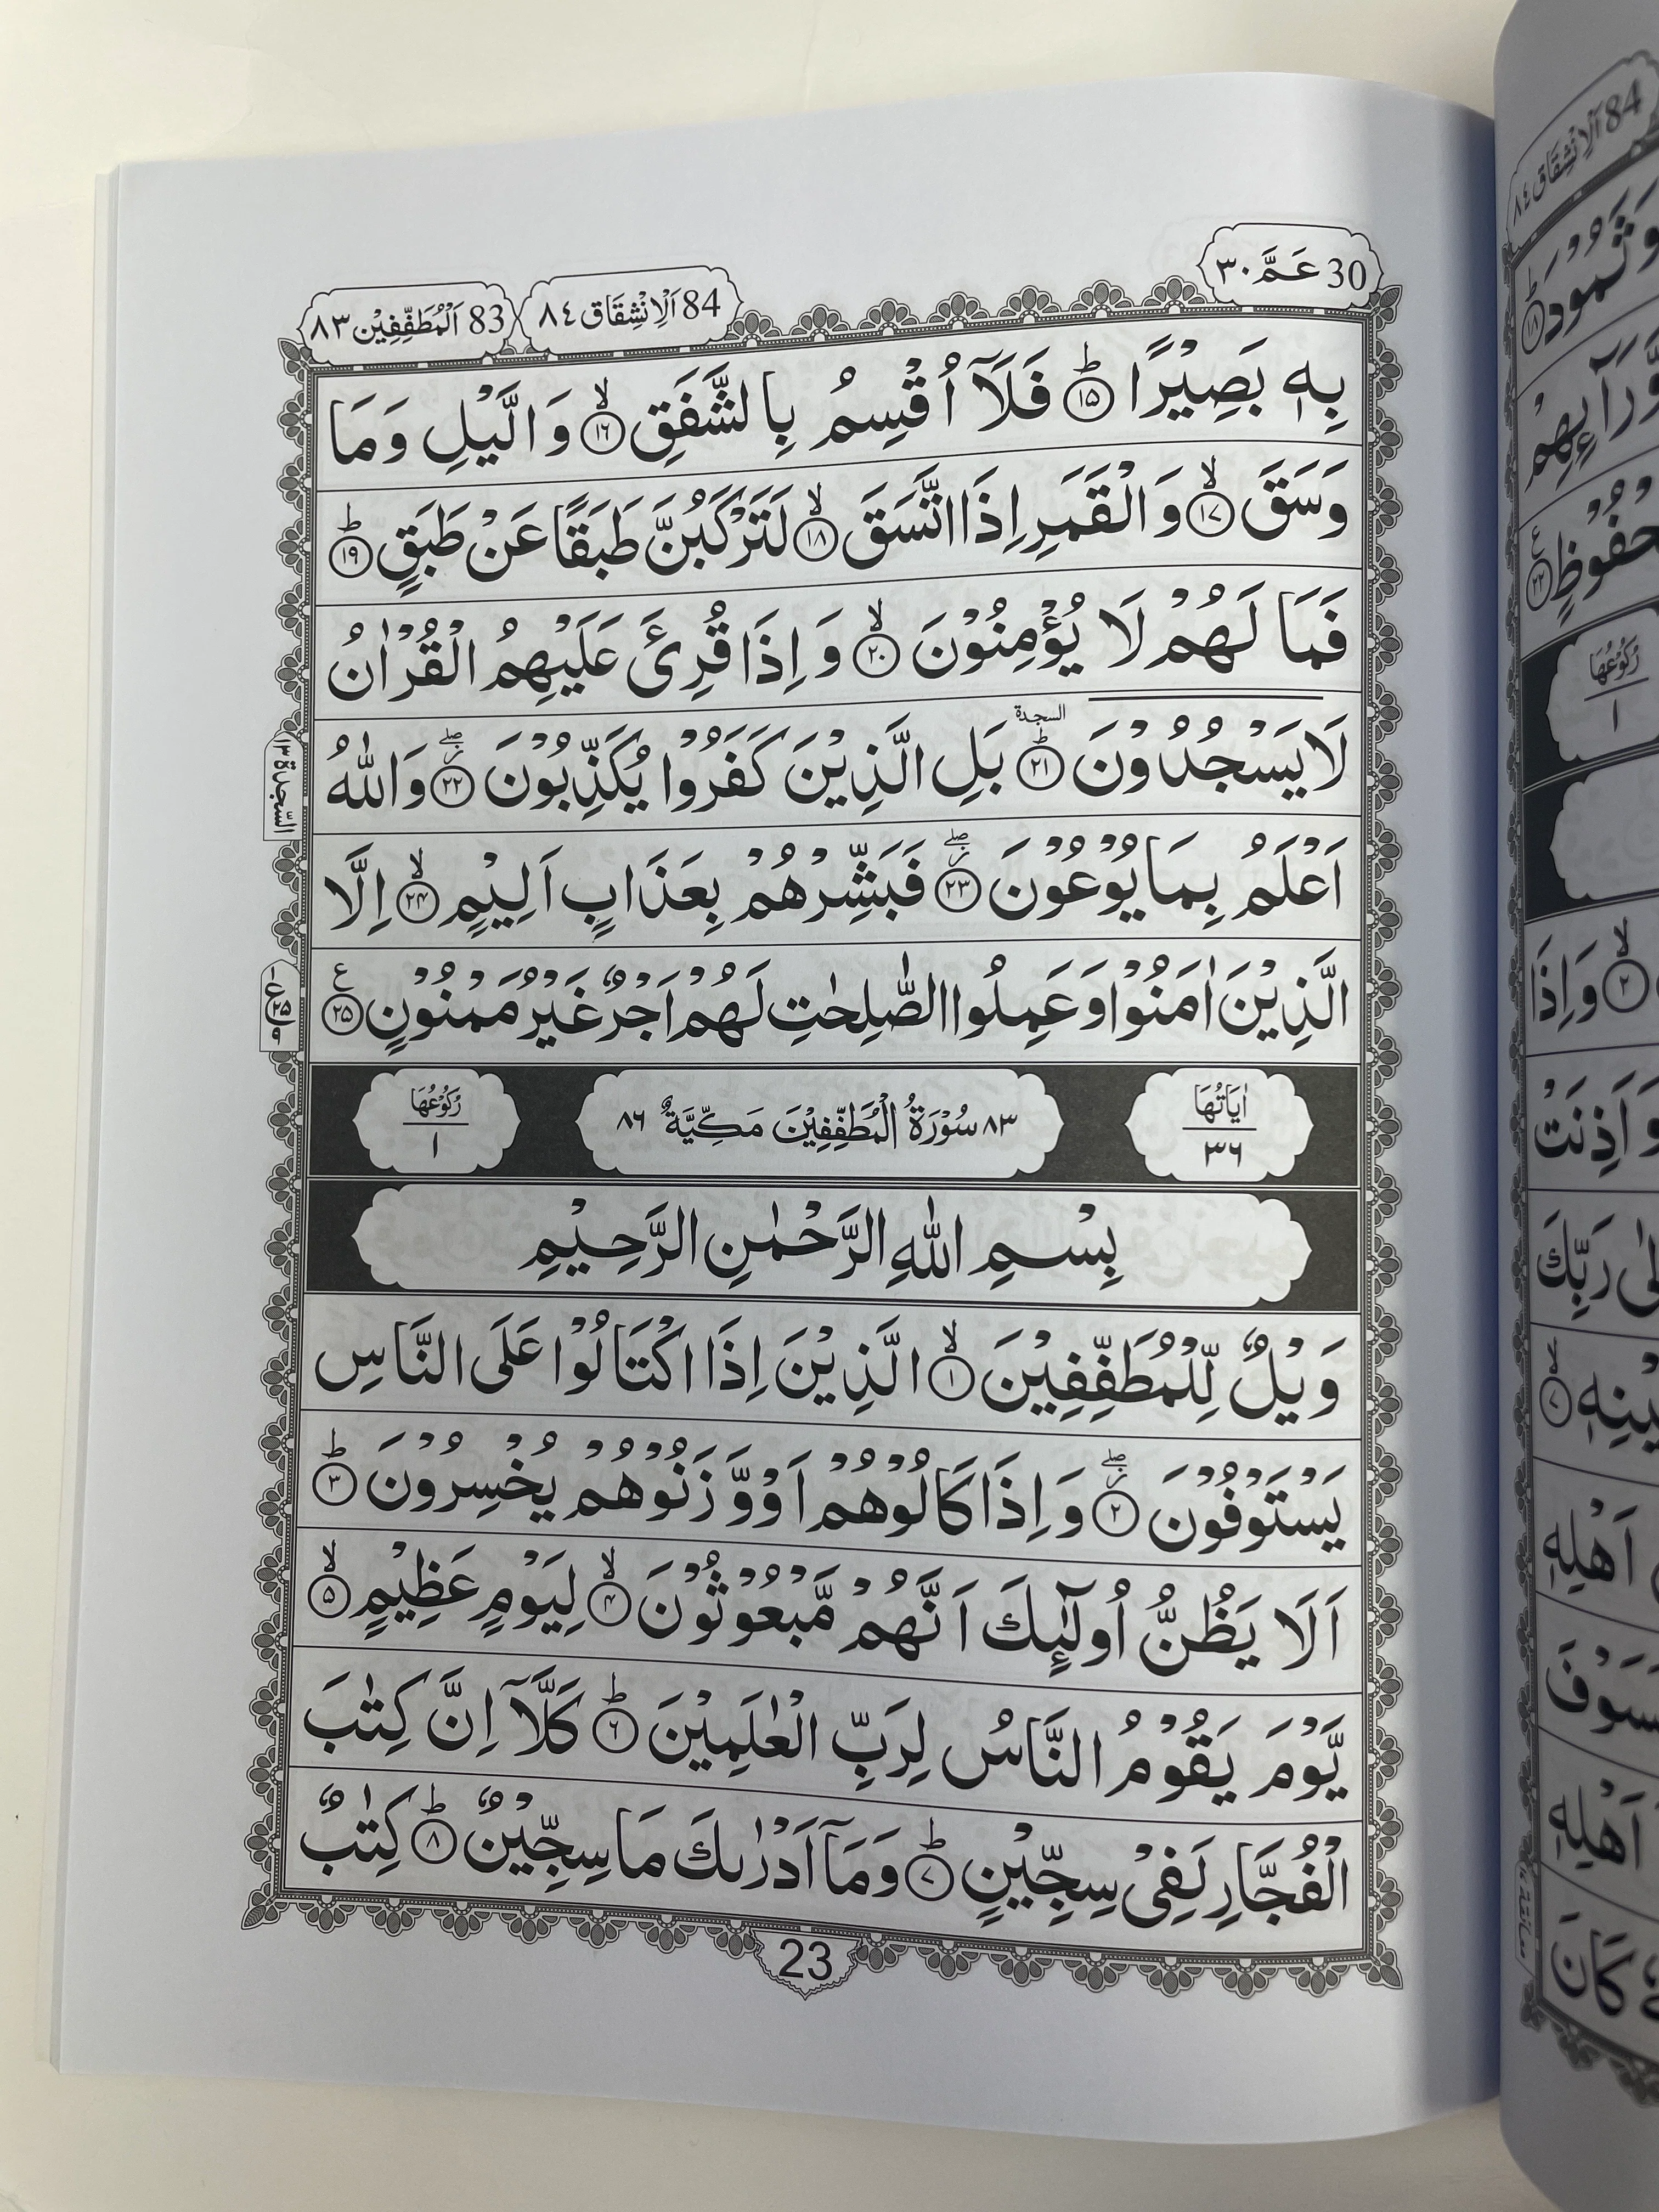 30 عَمَّ ٣٠
84 اَلْاِنْشِقَاق ٨٤
83 اَلْمُطَفِّفِيْن ٨٣
بِهٖ بَصِيْرًا ؕ ۝۱۵ فَلَاۤ اُقْسِمُ بِالشَّفَقِ ۙ ۝۱۶ وَالَّيْلِ وَمَا
وَسَقَ ۙ ۝۱۷ وَالْقَمَرِ اِذَا اتَّسَقَ ۙ ۝۱۸ لَتَرْكَبُنَّ طَبَقًا عَنْ طَبَقٍ ؕ ۝۱۹
فَمَا لَهُمْ لَا يُؤْمِنُوْنَ ۙ ۝۲۰ وَاِذَا قُرِئَ عَلَيْهِمُ الْقُرْاٰنُ
لَا يَسْجُدُوْنَ ؕ ۝۲۱ السجدة بَلِ الَّذِيْنَ كَفَرُوْا يُكَذِّبُوْنَ ۝۲۲ وَاللّٰهُ
السّجدة ١٣
اَعْلَمُ بِمَا يُوْعُوْنَ ۝۲۳ فَبَشِّرْهُمْ بِعَذَابٍ اَلِيْمٍ ۙ ۝۲۴ اِلَّا
الَّذِيْنَ اٰمَنُوْا وَعَمِلُوا الصّٰلِحٰتِ لَهُمْ اَجْرٌ غَيْرُ مَمْنُوْنٍ ۝۲۵ ع
اٰيَاتُهَا ٣٦
٨٣ سُوْرَةُ الْمُطَفِّفِيْنَ مَكِّيَّةٌ ٨٦
رُكُوْعُهَا ١
بِسْمِ اللّٰهِ الرَّحْمٰنِ الرَّحِيْمِ
وَيْلٌ لِّلْمُطَفِّفِيْنَ ۙ ۝۱ الَّذِيْنَ اِذَا اكْتَالُوْا عَلَى النَّاسِ
يَسْتَوْفُوْنَ ۝۲ وَاِذَا كَالُوْهُمْ اَوْ وَّزَنُوْهُمْ يُخْسِرُوْنَ ؕ ۝۳
اَلَا يَظُنُّ اُولٰٓئِكَ اَنَّهُمْ مَّبْعُوْثُوْنَ ۙ ۝۴ لِيَوْمٍ عَظِيْمٍ ۙ ۝۵
يَّوْمَ يَقُوْمُ النَّاسُ لِرَبِّ الْعٰلَمِيْنَ ؕ ۝۶ كَلَّاۤ اِنَّ كِتٰبَ
الْفُجَّارِ لَفِيْ سِجِّيْنٍ ؕ ۝۷ وَمَاۤ اَدْرٰىكَ مَا سِجِّيْنٌ ؕ ۝۸ كِتٰبٌ
23
84 اَلْاِنْشِقَاق ٨٤
وَثَمُوْدَ ؕ ۝۱۸
وَّرَآئِهِمْ
۝۲۲ ع
رُكُوْعُهَا ١
۝۲ وَاِذَا
وَاَذِنَتْ
رَبِّكَ
۝۷
اَهْلِهٖ
اَهْلِهٖ
كَانَ